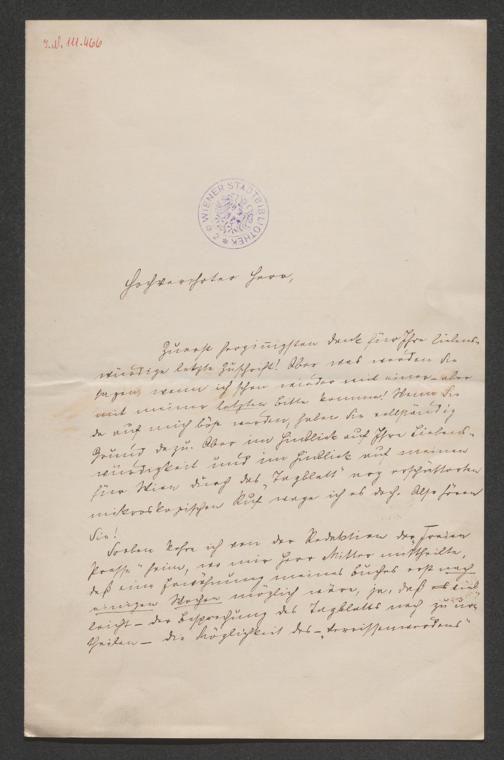 I.N. 111.466
WIENER STADTBIBLIOTHEK
Hochverehrter Herr,
Zuerst herzinnigsten Dank für Ihre liebens-
würdige letzte Zuschrift! Aber was werden Sie
sagen, wenn ich schon wieder mit einer – aber
mit meiner letzten Bitte komme! Wenn Sie
da auf mich böse werden, haben Sie vollständig
Grund dazu. Aber im Hinblick auf Ihre Liebens-
würdigkeit und im Hinblick auf meinen
für Wien durch das „Tagblatt" arg erschütterten
mikroskopischen Ruf wage ich es doch. Also hören
Sie!
Soeben kehre ich von der Redaktion der „Freien
Presse" heim, wo mir Herr mittheilte,
daß eine Erwähnung meines Buches erst nach
einigen Wochen möglich wäre, ja, daß viel
leicht – der Besprechung des Tagblatts nach zu ur
theilen – die Möglichkeit des – „Verrissenwerdens"